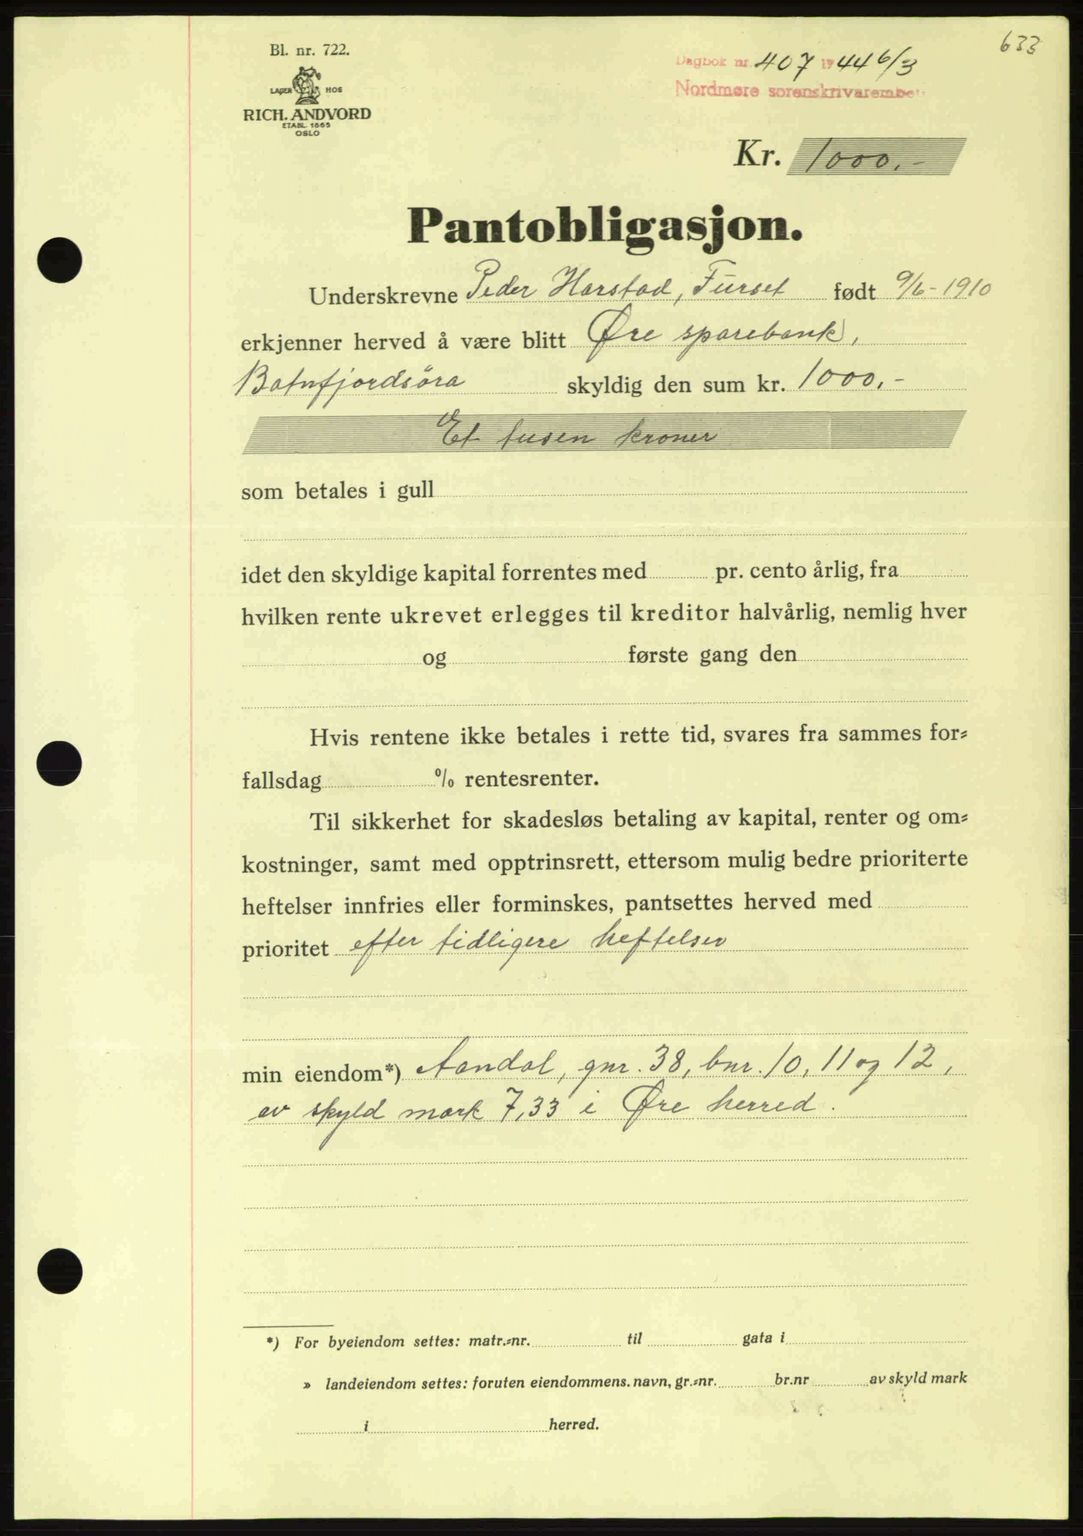 633
Bl. nr. 722.
LAGER HOS
RICH. ANDVORD
ETABL. 1865
OSLO
Dagbok nr. 407 1944 6/3
Nordmøre sorenskrivarembete
Kr. 1000.-
Pantobligasjon.
Underskrevne Peder Harstad, Furset født 9/6-1910
erkjenner herved å være blitt Øre sparebank,
Batnfjordsøra skyldig den sum kr. 1000,-
Et tusen kroner
som betales i gull
idet den skyldige kapital forrentes med pr. cento årlig, fra
hvilken rente ukrevet erlegges til kreditor halvårlig, nemlig hver
og første gang den
Hvis rentene ikke betales i rette tid, svares fra sammes for-
fallsdag % rentesrenter.
Til sikkerhet for skadesløs betaling av kapital, renter og om-
kostninger, samt med opptrinsrett, ettersom mulig bedre prioriterte
heftelser innfries eller forminskes, pantsettes herved med
prioritet efter tidligere heftelser
min eiendom*) Aandal, gnr. 38, bnr. 10, 11 og 12,
av skyld mark 7,33 i Øre herred.
*) For byeiendom settes: matr.-nr. til gata i
» landeiendom settes: foruten eiendommens. navn, gr.-nr. br.nr av skyld mark
i herred.